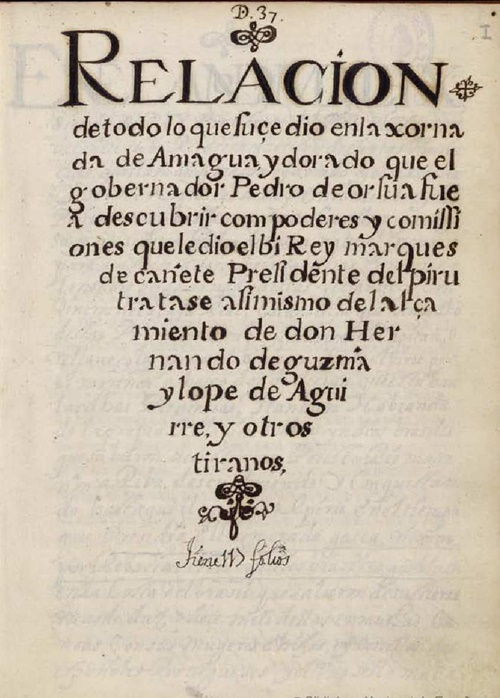 D. 37.
1
RELACION
de todo lo que suçedio en la xorna
da de Amagua y dorado que el
gobernador Pedro de orsua fue
a descubrir com poderes y comissi
ones que le dio el bi Rey marques
de cañete Presidente del piru
tratase asimismo del alça
miento de don Her
nando de guzmã
y lope de Agui
rre, y otros
tiranos,
folios